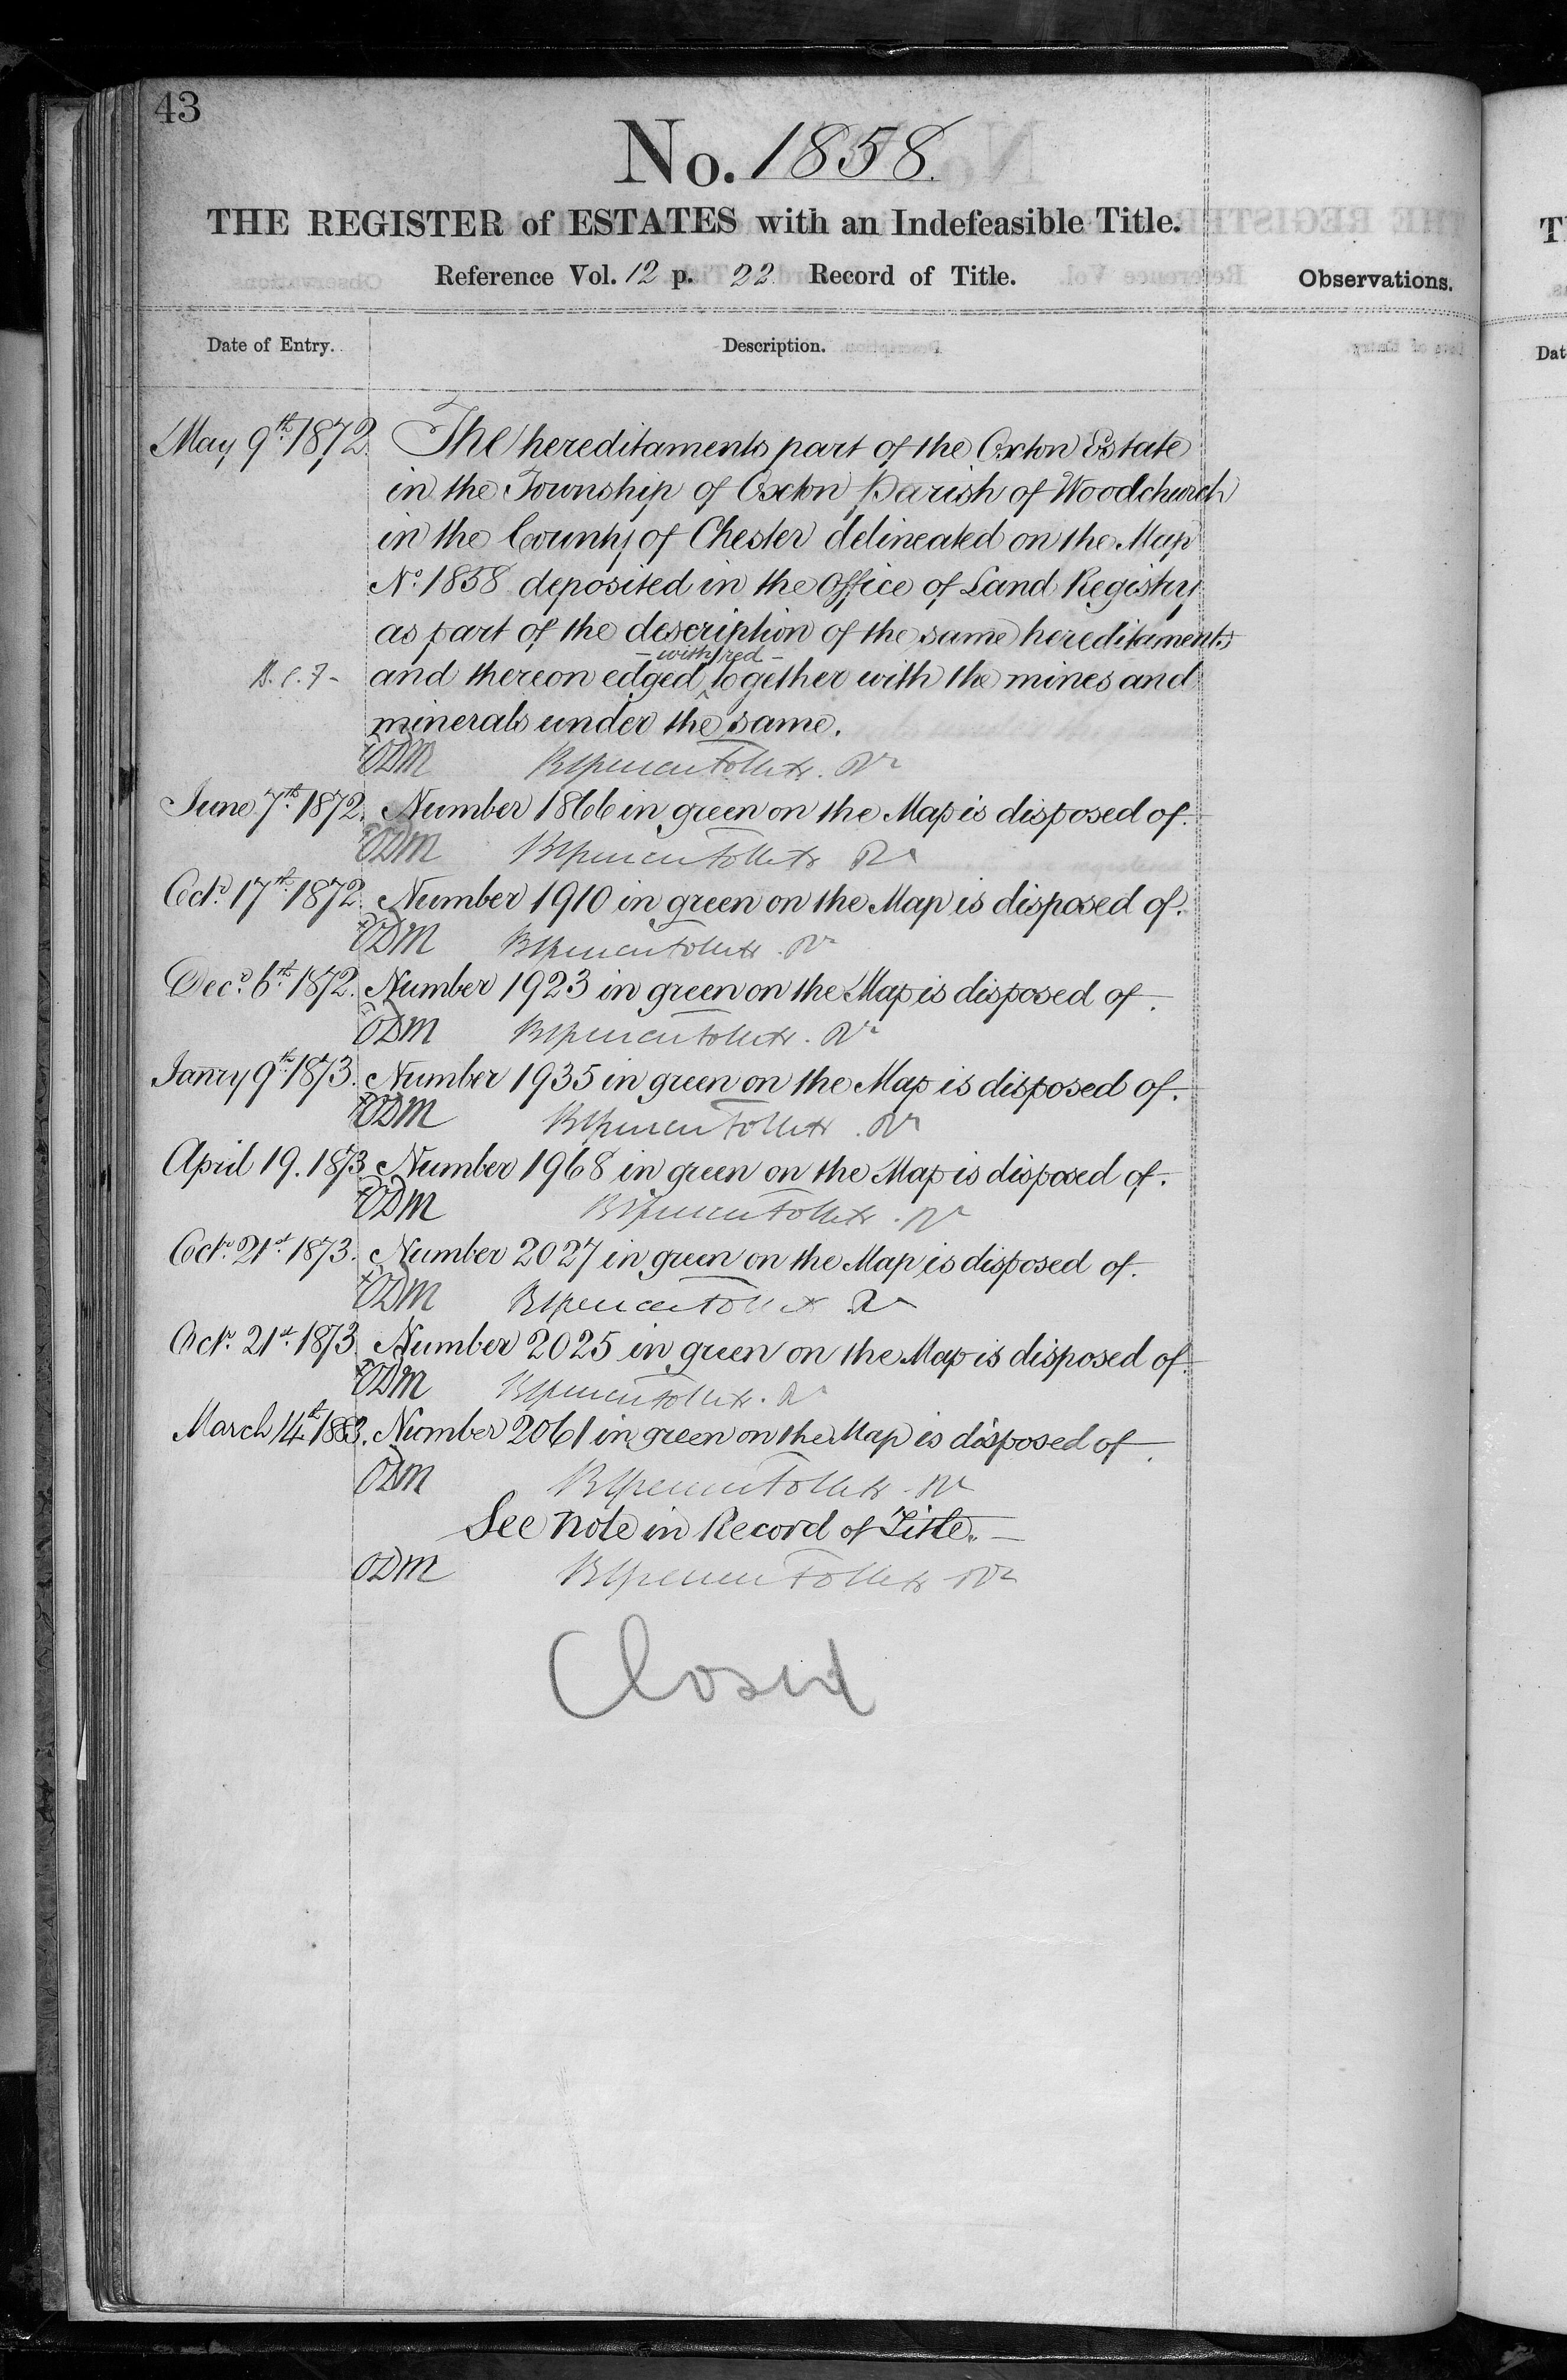 43
No. 1858.
THE REGISTER of ESTATES with an Indefeasible Title.
Reference Vol. 12 p. 22. Record of Title.
Observations.
Date of Entry.
Description.
May 9th. 1872. The hereditaments part of the Oxton Estate
in the Township of Oxton Parish of Woodchurch
in the County of Chester delineated on the Map
No. 1858 deposited in the Office of Land Registry
as part of the description of the same hereditaments
- with red -
and thereon edged ^ together with the mines and
minerals under the same.
ODM
June 7th. 1872. Number 1866 in green on the Map is disposed of.
ODM
Octr. 17th. 1872. Number 1910 in green on the Map is disposed of.
ODM
Decr. 6th. 1872. Number 1923 in green on the Map is disposed of.
ODM
Janry 9th. 1873. Number 1935 in green on the Map is disposed of.
ODM
April 19. 1873. Number 1968 in green on the Map is disposed of.
ODM
Octr. 21st. 1873. Number 2027 in green on the Map is disposed of.
ODM
Octr. 21st. 1873. Number 2025 in green on the Map is disposed of.
ODM
March 14th. Number 2061 in green on the Map is disposed of.
ODM
See note in Record of Title. —
ODM
Closed
T
Dat